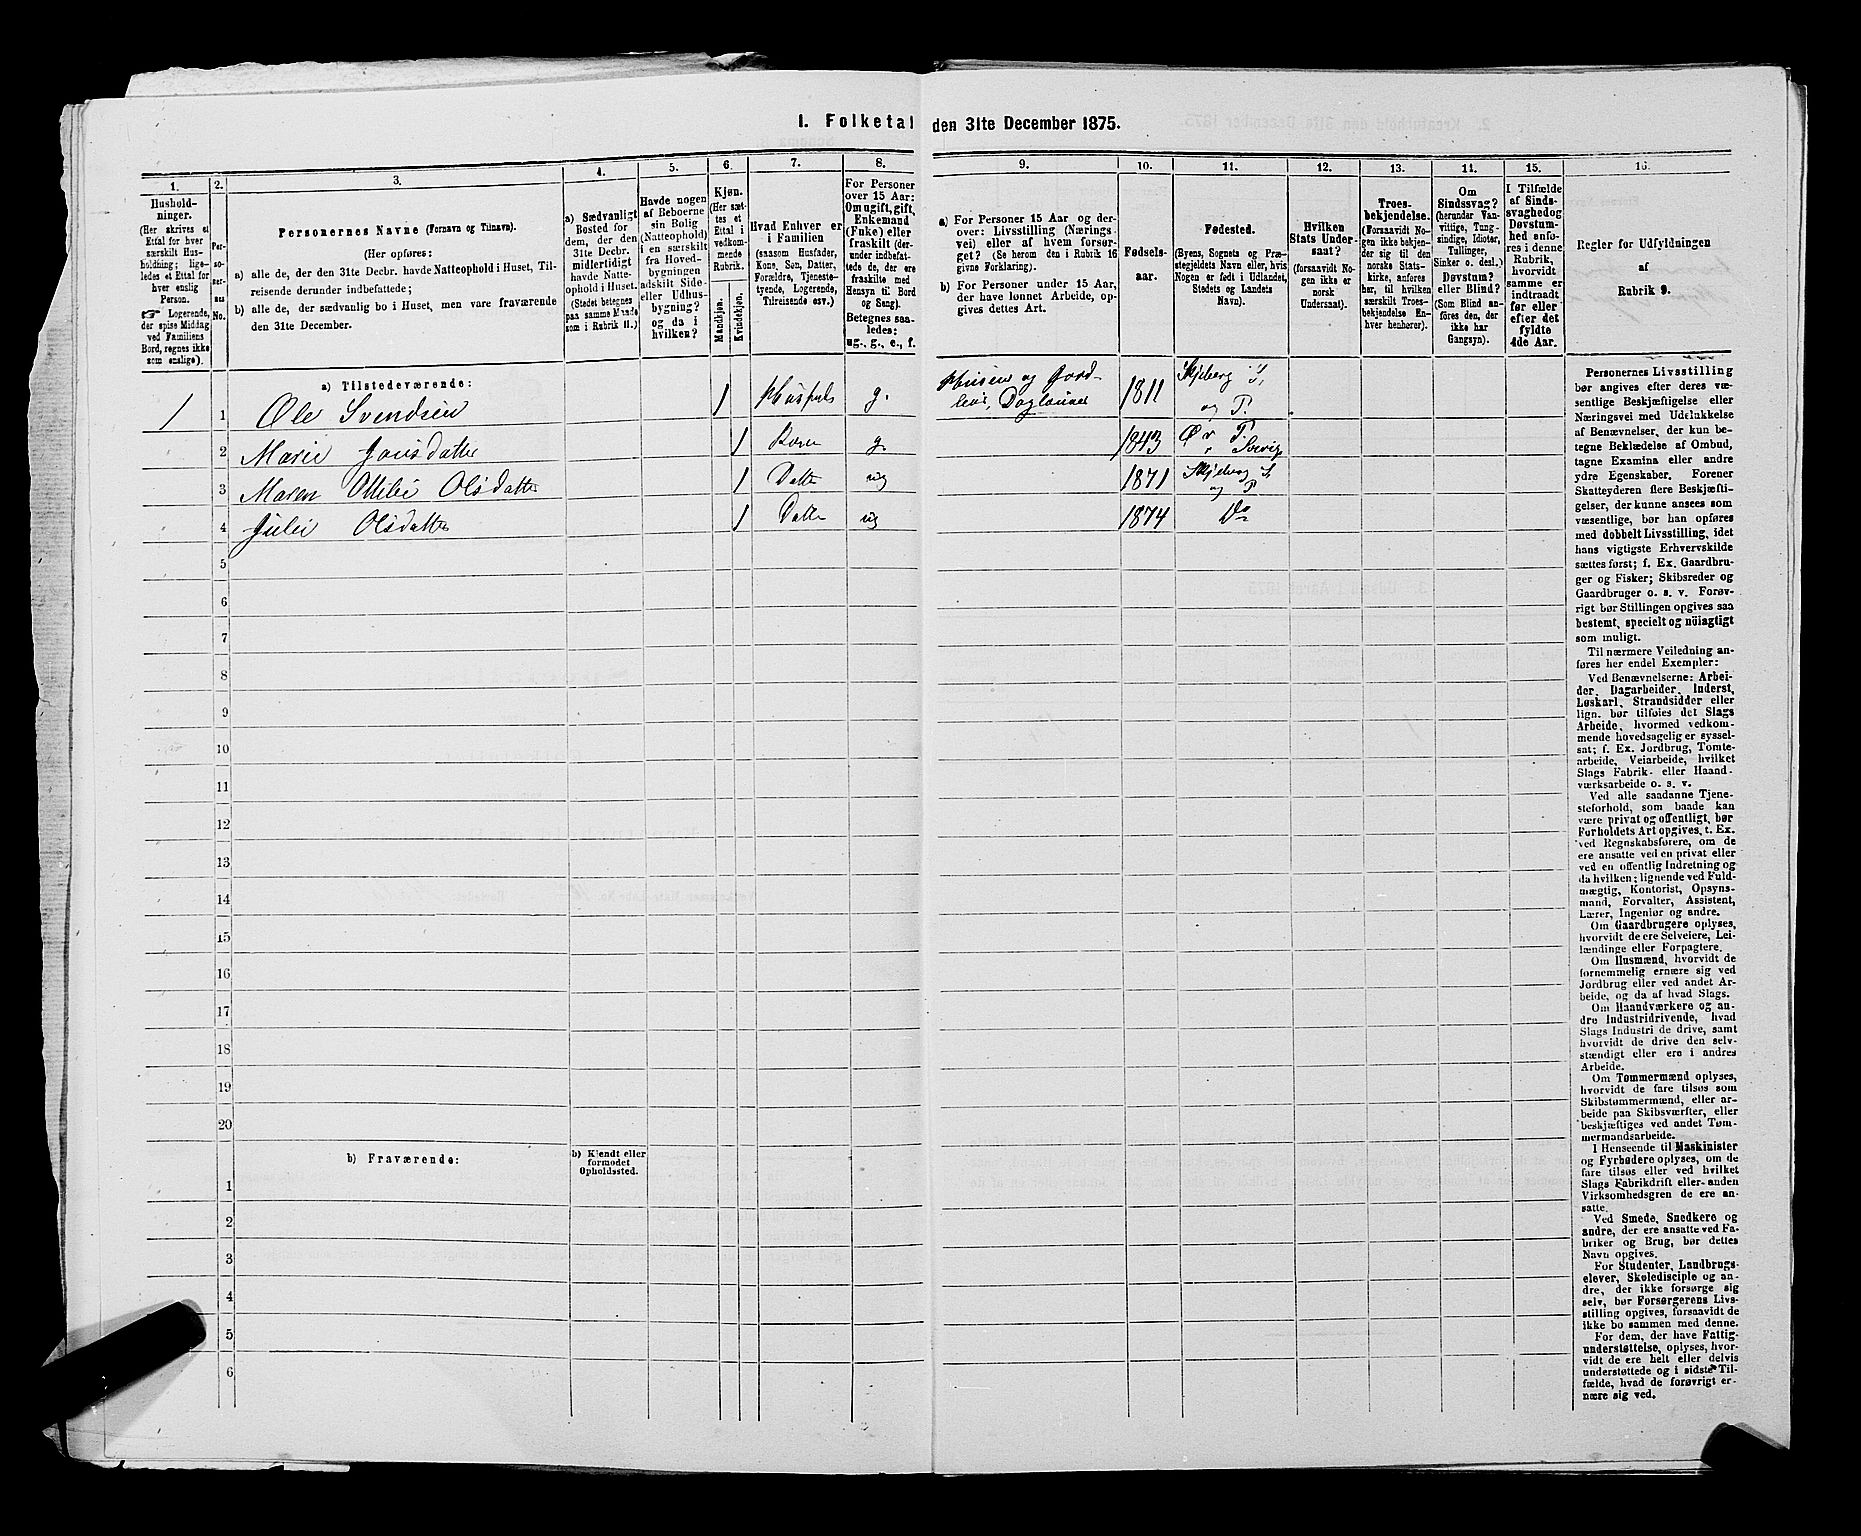 I. Folketal den 31te December 1875.
1.
Hushold-
ninger.
(Her skrives et
Ettal for hver
særskilt Hus-
holdning; lige-
ledes et Ettal for
hver enslig
Person.
☞ Logerende,
der spise Middag
ved Familiens
Bord, regnes ikke
som enslige).
2.
Per-
so-
nernes
No.
3.
Personernes Navne (Fornavn og Tilnavn).
(Her opføres:
a) alle de, der den 31te Decbr. havde Natteophold i Huset, Til-
reisende derunder indbefattede;
b) alle de, der sædvanlig bo i Huset, men vare fraværende
den 31te December.
4.
a) Sædvanligt
Bosted for
dem, der den
31te Decbr.
midlertidigt
havde Natte-
ophold i Huset.
(Stedet betegnes
paa samme Maade
som i Rubrik 11.)
5.
Havde nogen
af Beboerne
sin Bolig
(Natteophold)
i en særskilt
fra Hoved-
bygningen
adskilt Side-
eller Udhus-
bygning?
og da i
hvilken?
6.
Kjøn.
(Her sæt-
tes et
Ettal i
vedkom-
mende
Rubrik.
Mandkjøn.
Kvindekjøn.
7.
Hvad Enhver er
i Familien
(saasom Husfader,
Kone, Søn, Datter,
Forældre, Tjeneste-
tyende, Logerende,
Tilreisende osv.)
8.
For Personer
over 15 Aar:
Om ugift, gift,
Enkemand
(Enke) eller
fraskilt (der-
under indbefat-
tede de, der ere
fraskilte med
Hensyn til Bord
og Seng).
Betegnes saa-
ledes:
ug., g., e., f.
9.
a) For Personer 15 Aar og der-
over: Livsstilling (Nærings-
vei) eller af hvem forsør-
get? (Se herom den i Rubrik 16
givne Forklaring).
b) For Personer under 15 Aar,
der have lønnet Arbeide, op-
gives dettes Art.
10.
Fødsels-
aar.
11.
Fødested.
(Byens, Sognets og Præ-
stegjeldets Navn eller, hvis
Nogen er født i Udlandet,
Stedets og Landets
Navn).
12.
Hvilken
Stats Under-
saat?
(forsaavidt No-
gen ikke er
norsk
Undersaat).
13.
Troes-
bekjendelse.
(Forsaavidt No-
gen ikke bekjen-
der sig til den
norske Stats-
kirke, anføres
her, til hvilken
særskilt Troes-
bekjendelse En-
hver henhører).
14.
Om
Sindssvag?
(herunder Van-
vittige, Tung-
sindige, Idioter,
Tullinger,
Sinker o. desl.)
Døvstum?
eller Blind?
(Som Blind an-
føres den, der
ikke har
Gangsyn).
15.
I Tilfælde
af Sinds-
svaghed og
Døvstum-
hed anfø-
res i denne
Rubrik,
hvorvidt
samme er
indtraadt
før eller
efter det
fyldte
4de Aar.
16.
Regler for Udfyldningen
af
Rubrik 9.
a) Tilstedeværende:
1 1 Ole Svendsen 1 Husfad. g. Huseier og Jord- 1811 Skjeberg S.
leier, Daglønner og P.
2 Marie Jonsdatter 1 Kone g. 1843 P. Sverig
3 Maren Ottilie Olsdatter 1 Datter ug 1871 Skjeberg S
og P
4 Julie Olsdatter 1 Datter ug 1874 Do
5
6
7
8
9
10
11
12
13
14
15
16
17
18
19
20
b) Fraværende:
b) Kjendt eller
formodet
Opholdssted.
1
2
3
4
5
6
Personernes Livsstilling
bør angives efter deres væ-
sentlige Beskjæftigelse eller
Næringsvei med Udelukkelse
af Benævnelser, der kun be-
tegne Beklædelse af Ombud,
tagne Examina eller andre
ydre Egenskaber. Forener
Skatteyderen flere Beskjæfti-
gelser, der kunne ansees som
væsentlige, bør han opføres
med dobbelt Livsstilling, idet
hans vigtigste Erhvervskilde
sættes først; f. Ex. Gaardbru-
ger og Fisker; Skibsreder og
Gaardbruger o. s. v. Forøv-
rigt bør Stillingen opgives saa
bestemt, specielt og nöiagtigt
som muligt.
Til nærmere Veiledning an-
føres her endel Exempler:
Ved Benævnelserne: Arbei-
der, Dagarbeider, Inderst,
Løskarl, Strandsidder eller
lign. bør tilføies det Slags
Arbeide, hvormed vedkom-
mende hovedsagelig er syssel-
sat; f. Ex. Jordbrug, Tomte-
arbeide, Veiarbeide, hvilket
Slags Fabrik- eller Haand-
værksarbeide o. s. v.
Ved alle saadanne Tjene-
steforhold, som baade kan
være privat og offentligt, bør
Forholdets Art opgives, t. Ex.
ved Regnskabsførere, om de
ere ansatte ved en privat eller
ved en offentlig Indretning og
da hvilken; lignende ved Fuld-
mægtig, Kontorist, Opsyns-
mand, Forvalter, Assistent,
Lærer, Ingeniør og andre.
Om Gaardbrugere oplyses,
hvorvidt de ere Selveiere, Lei-
lændinge eller Forpagtere.
Om Husmænd, hvorvidt de
fornemmelig ernære sig ved
Jordbrug eller ved andet Ar-
beide, og da af hvad Slags.
Om Haandværkere og an-
dre Industridrivende, hvad
Slags Industri de drive, samt
hvorvidt de drive den selv-
stændigt eller ere i andres
Arbeide.
Om Tømmermænd oplyses,
hvorvidt de fare tilsøs som
Skibstømmermænd, eller ar-
beide paa Skibsværfter, eller
beskjæftiges ved andet Tøm-
mermandsarbeide.
I Henseende til Maskinister
og Fyrbødere oplyses, om de
fare tilsøs eller ved hvilket
Slags Fabrikdrift eller anden
Virksomhedsgren de ere an-
satte.
Ved Smede, Snedkere og
andre, der ere ansatte ved Fa-
briker og Brug, bør dettes
Navn opgives.
For Studenter, Landbrugs-
elever, Skoledisciple og an-
dre, der ikke forsørge sig
selv, bør Forsørgerens Livs-
stilling opgives, forsaavidt de
ikke bo sammen med denne.
For dem, der have Fattig-
understøttelse, oplyses, hvor-
vidt de ere helt eller delvis
understøttede og i sidste Til-
fælde, hvad de forøvrigt er-
nære sig ved.